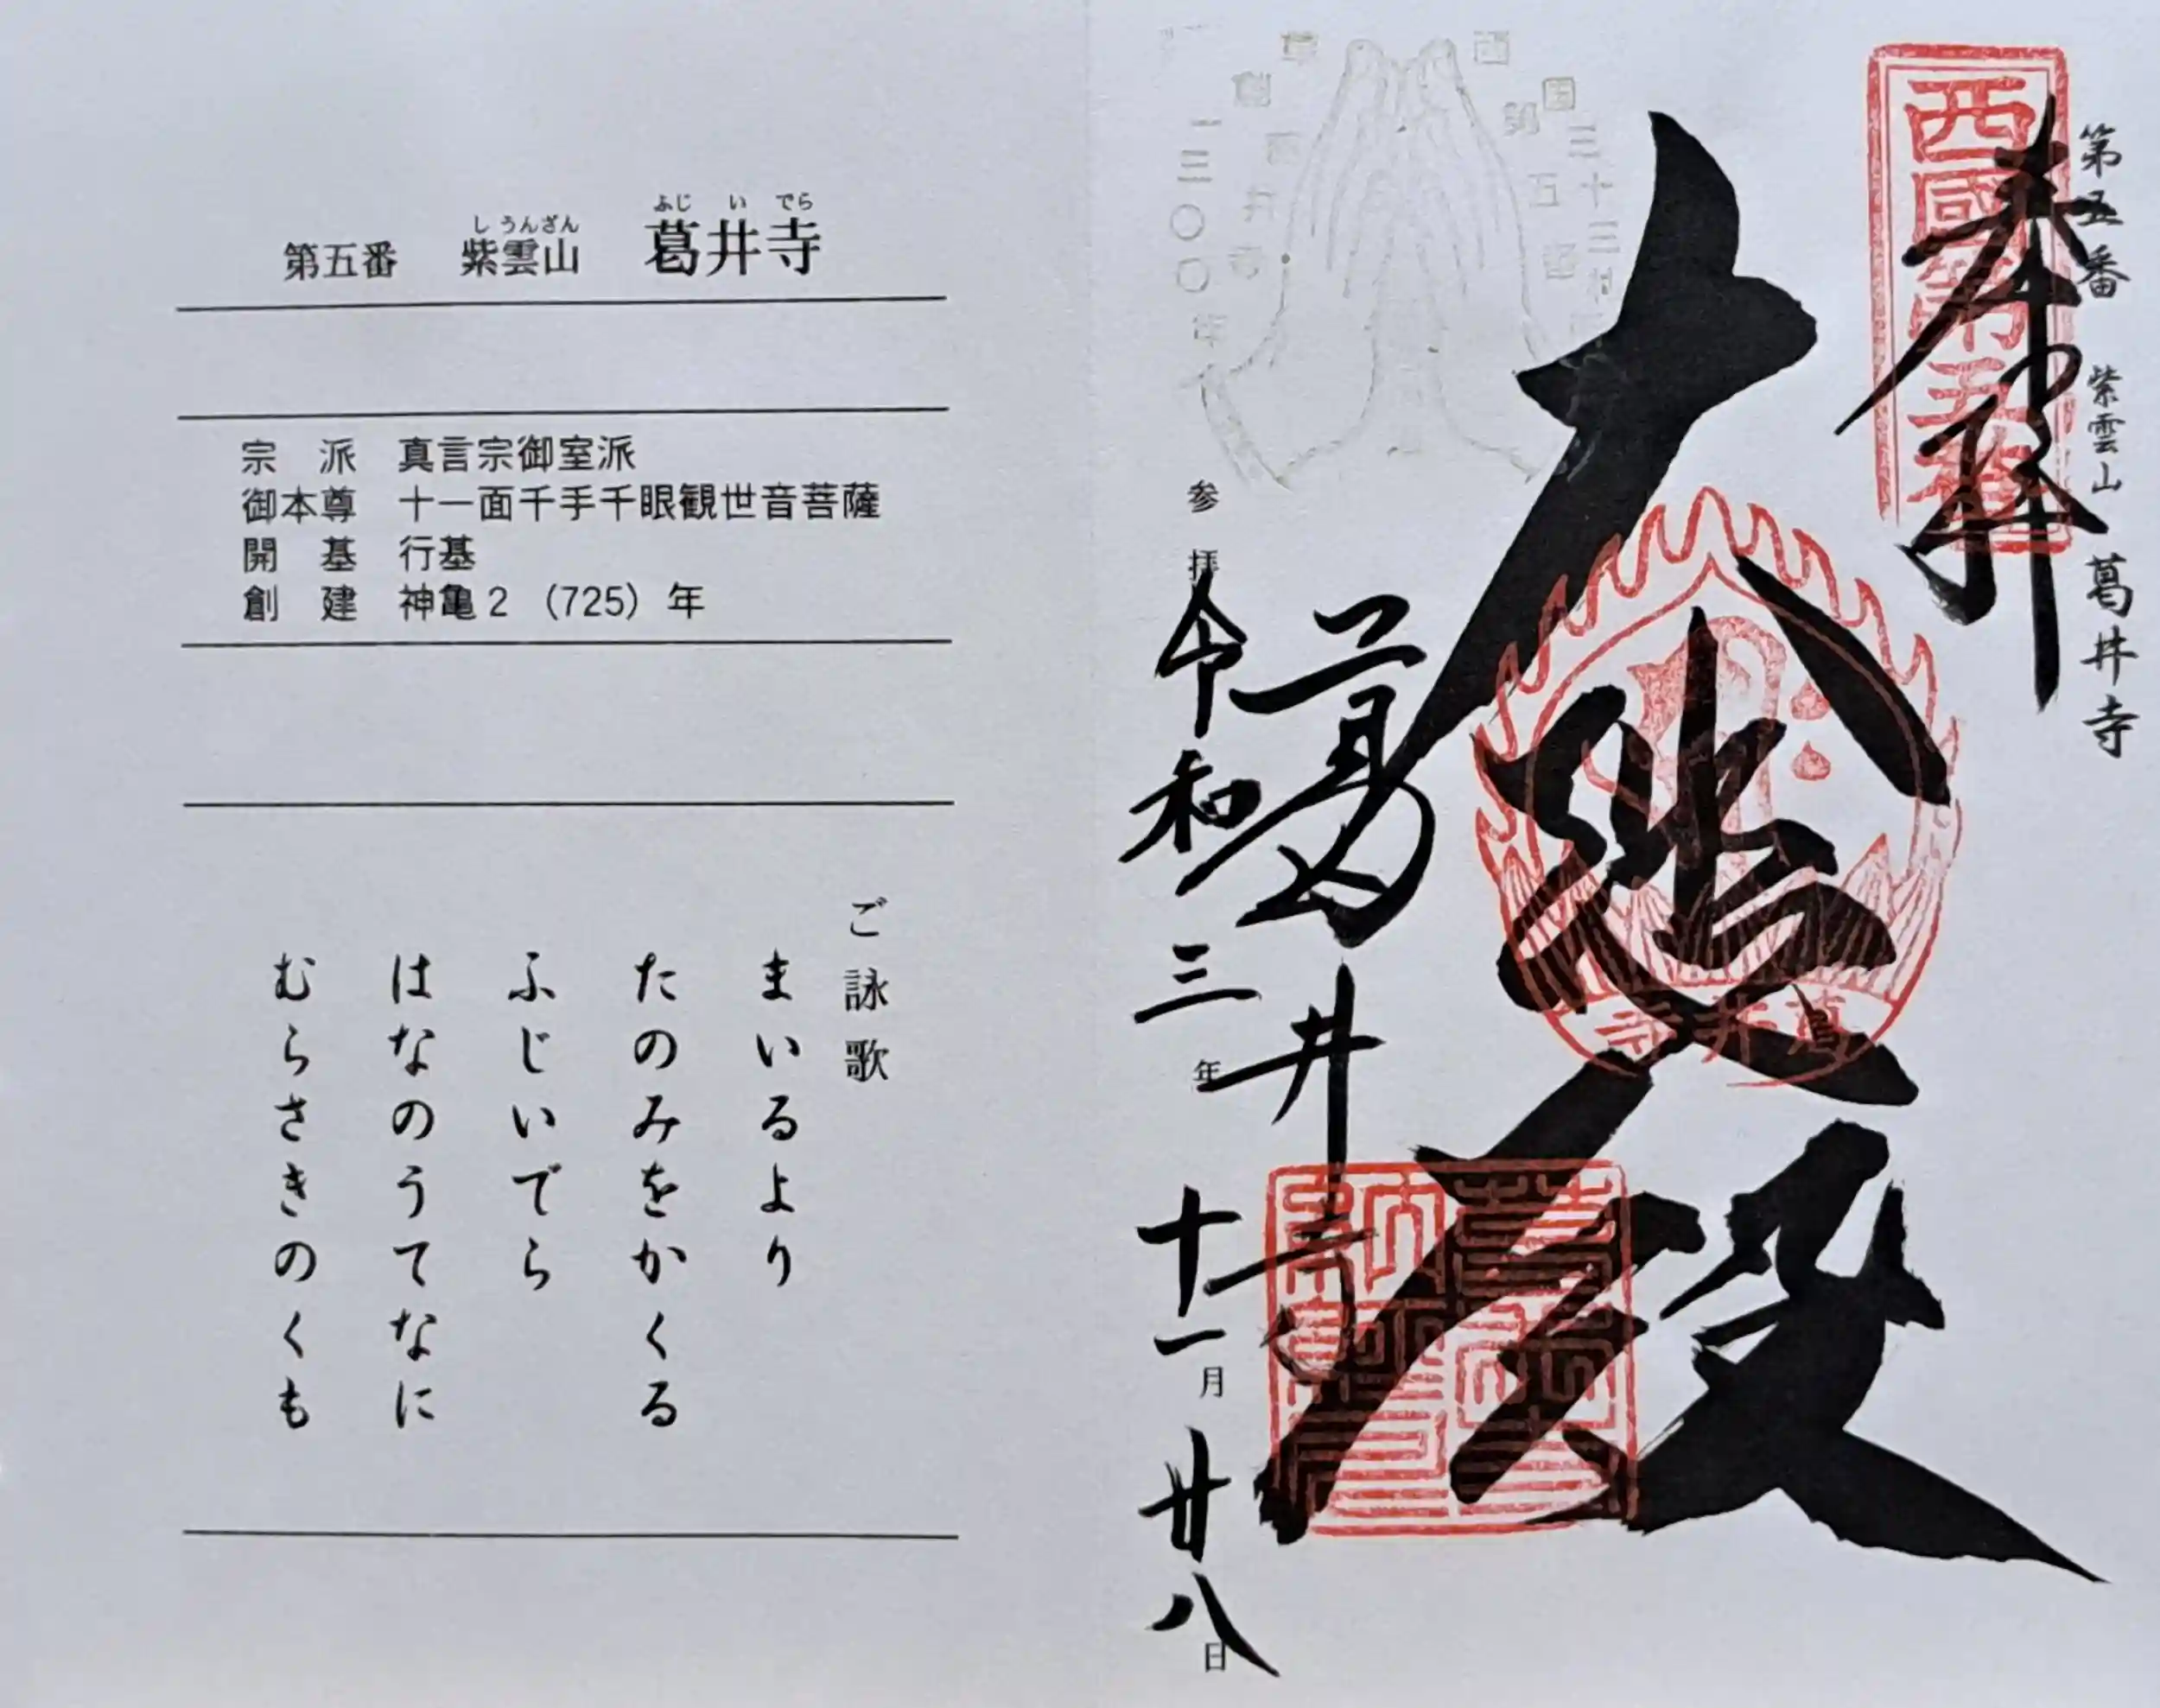 第五番　紫雲山　葛井寺
しうんざん　ふじいでら
宗　派　真言宗御室派
御本尊　十一面千手千眼観世音菩薩
開　基　行基
創　建　神亀2（725）年
ご詠歌
まいるより
たのみをかくる
ふじいでら
はなのうてなに
むらさきのくも
第五番　紫雲山　葛井寺
奉拝
西國第五番
大悲殿
葛井寺
葛井寺
参拝　令和三年十一月廿八日
西国三十三所
草創一三〇〇年